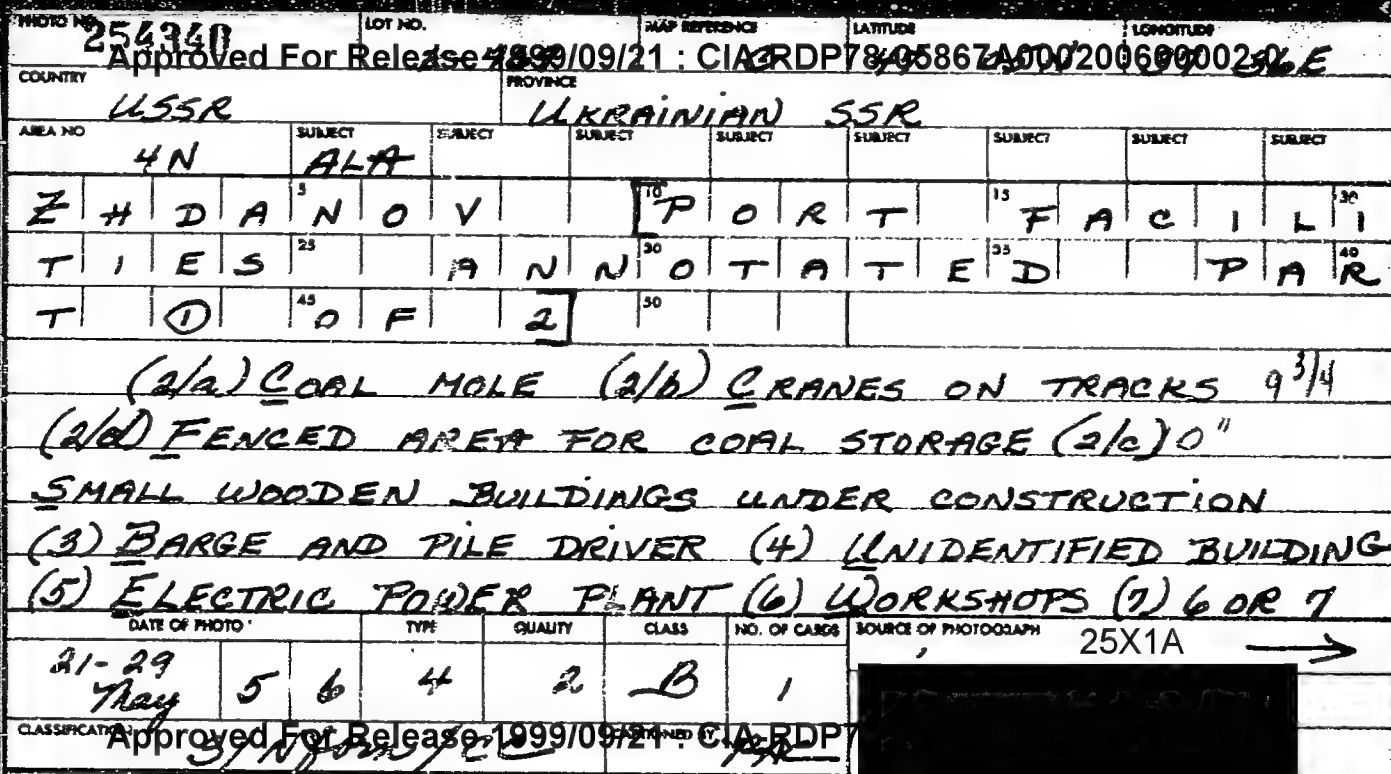 PHOTO NO. LOT NO. MAP REFERENCE LATITUDE LONGITUDE
254340
Approved For Release 1999/09/21 : CIA-RDP78-05867A000200600002-0
COUNTRY PROVINCE
USSR UKRAINIAN SSR
AREA NO SUBJECT SUBJECT SUBJECT SUBJECT SUBJECT SUBJECT SUBJECT SUBJECT
4N ALA
ZHDANOV PORT FACILI
TIES ANNOTATED PAR
T 1 OF 2
(2/a) COAL MOLE (2/b) CRANES ON TRACKS 9 3/4
(2/d) FENCED AREA FOR COAL STORAGE (2/c) 0"
SMALL WOODEN BUILDINGS UNDER CONSTRUCTION
(3) BARGE AND PILE DRIVER (4) UNIDENTIFIED BUILDING
(5) ELECTRIC POWER PLANT (6) WORKSHOPS (7) 6 OR 7
DATE OF PHOTO TYPE QUALITY CLASS NO. OF CARDS SOURCE OF PHOTOGRAPH
21-29 May 56 4 2 B 1 25X1A
CLASSIFICATION
Approved For Release 1999/09/21 : CIA-RDP7